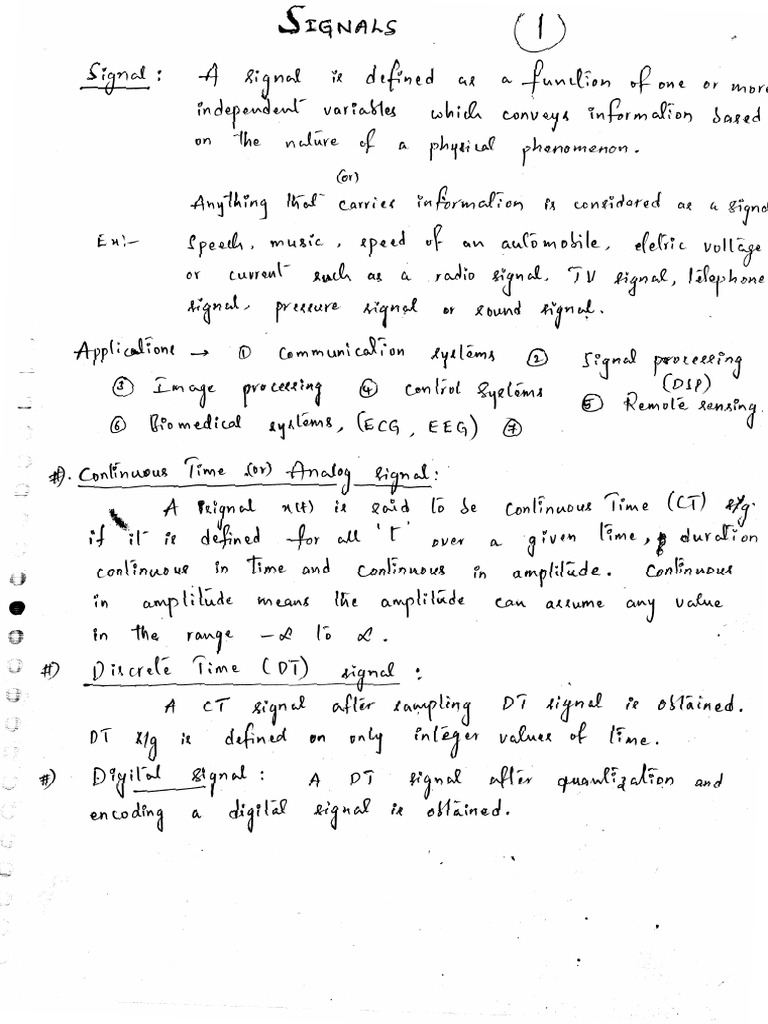 SIGNALS (1)
Signal : A signal is defined as a function of one or more
independent variables which conveys information based
on the nature of a physical phenomenon.
(or)
Anything that carries information is considered as a signa
Ex:- Speech, music, speed of an automobile, eletric voltage
or current such as a radio signal, TV signal, telephone
signal, pressure signal or sound signal.
Applications → ① Communication systems ② Signal processing
(DSP)
③ Image processing ④ control Systems ⑤ Remote sensing.
⑥ Biomedical systems, (ECG, EEG) ⑦
#). Continuous Time (or) Analog signal:
A signal x(t) is said to be continuous Time (CT) s/g.
if it is defined for all 't' over a given time, duration
continuous in time and continuous in amplitude. Continuous
in amplitude means the amplitude can assume any value
in the range -∞ to ∞.
#) Discrete Time (DT) signal :
A CT signal after sampling DT signal is obtained.
DT s/g is defined on only integer values of time.
#) Digital signal : A DT signal after quantization and
encoding a digital signal is obtained.